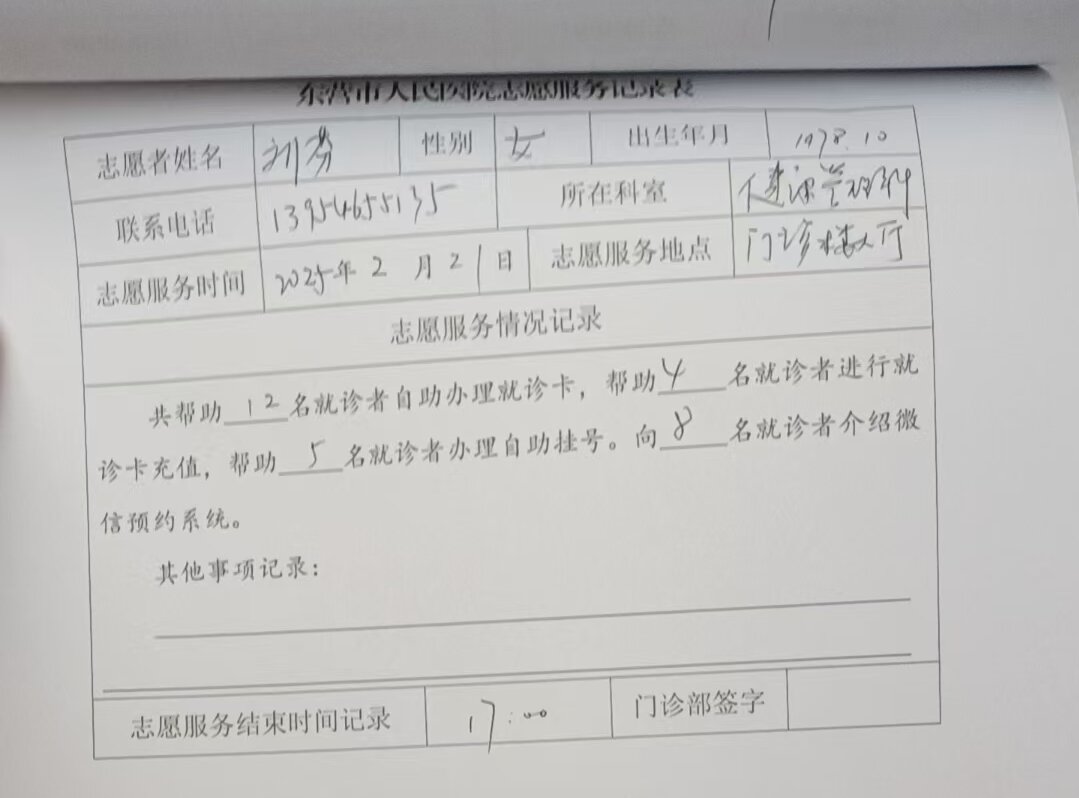 东营市人民医院志愿服务记录表
志愿者姓名 刘芬 性别 女 出生年月 1978.10
联系电话 13954655135 所在科室 健康管理科
志愿服务时间 2025年2月21日 志愿服务地点 门诊楼大厅
志愿服务情况记录
共帮助12名就诊者自助办理就诊卡，帮助4名就诊者进行就
诊卡充值，帮助5名就诊者办理自助挂号。向8名就诊者介绍微
信预约系统。
其他事项记录：
志愿服务结束时间记录 17:00 门诊部签字